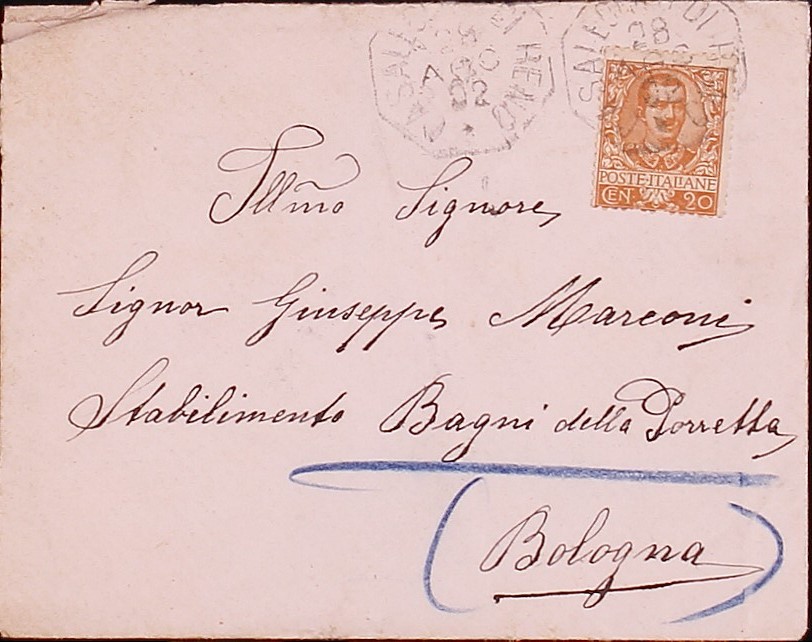 CASALECCHIO DI RENO
CASALECCHIO DI R
28
POSTE·ITALIANE
CEN. 20
Illm̃o Signore,
Signor Giuseppe Marconi
Stabilimento Bagni della Porretta
(Bologna)